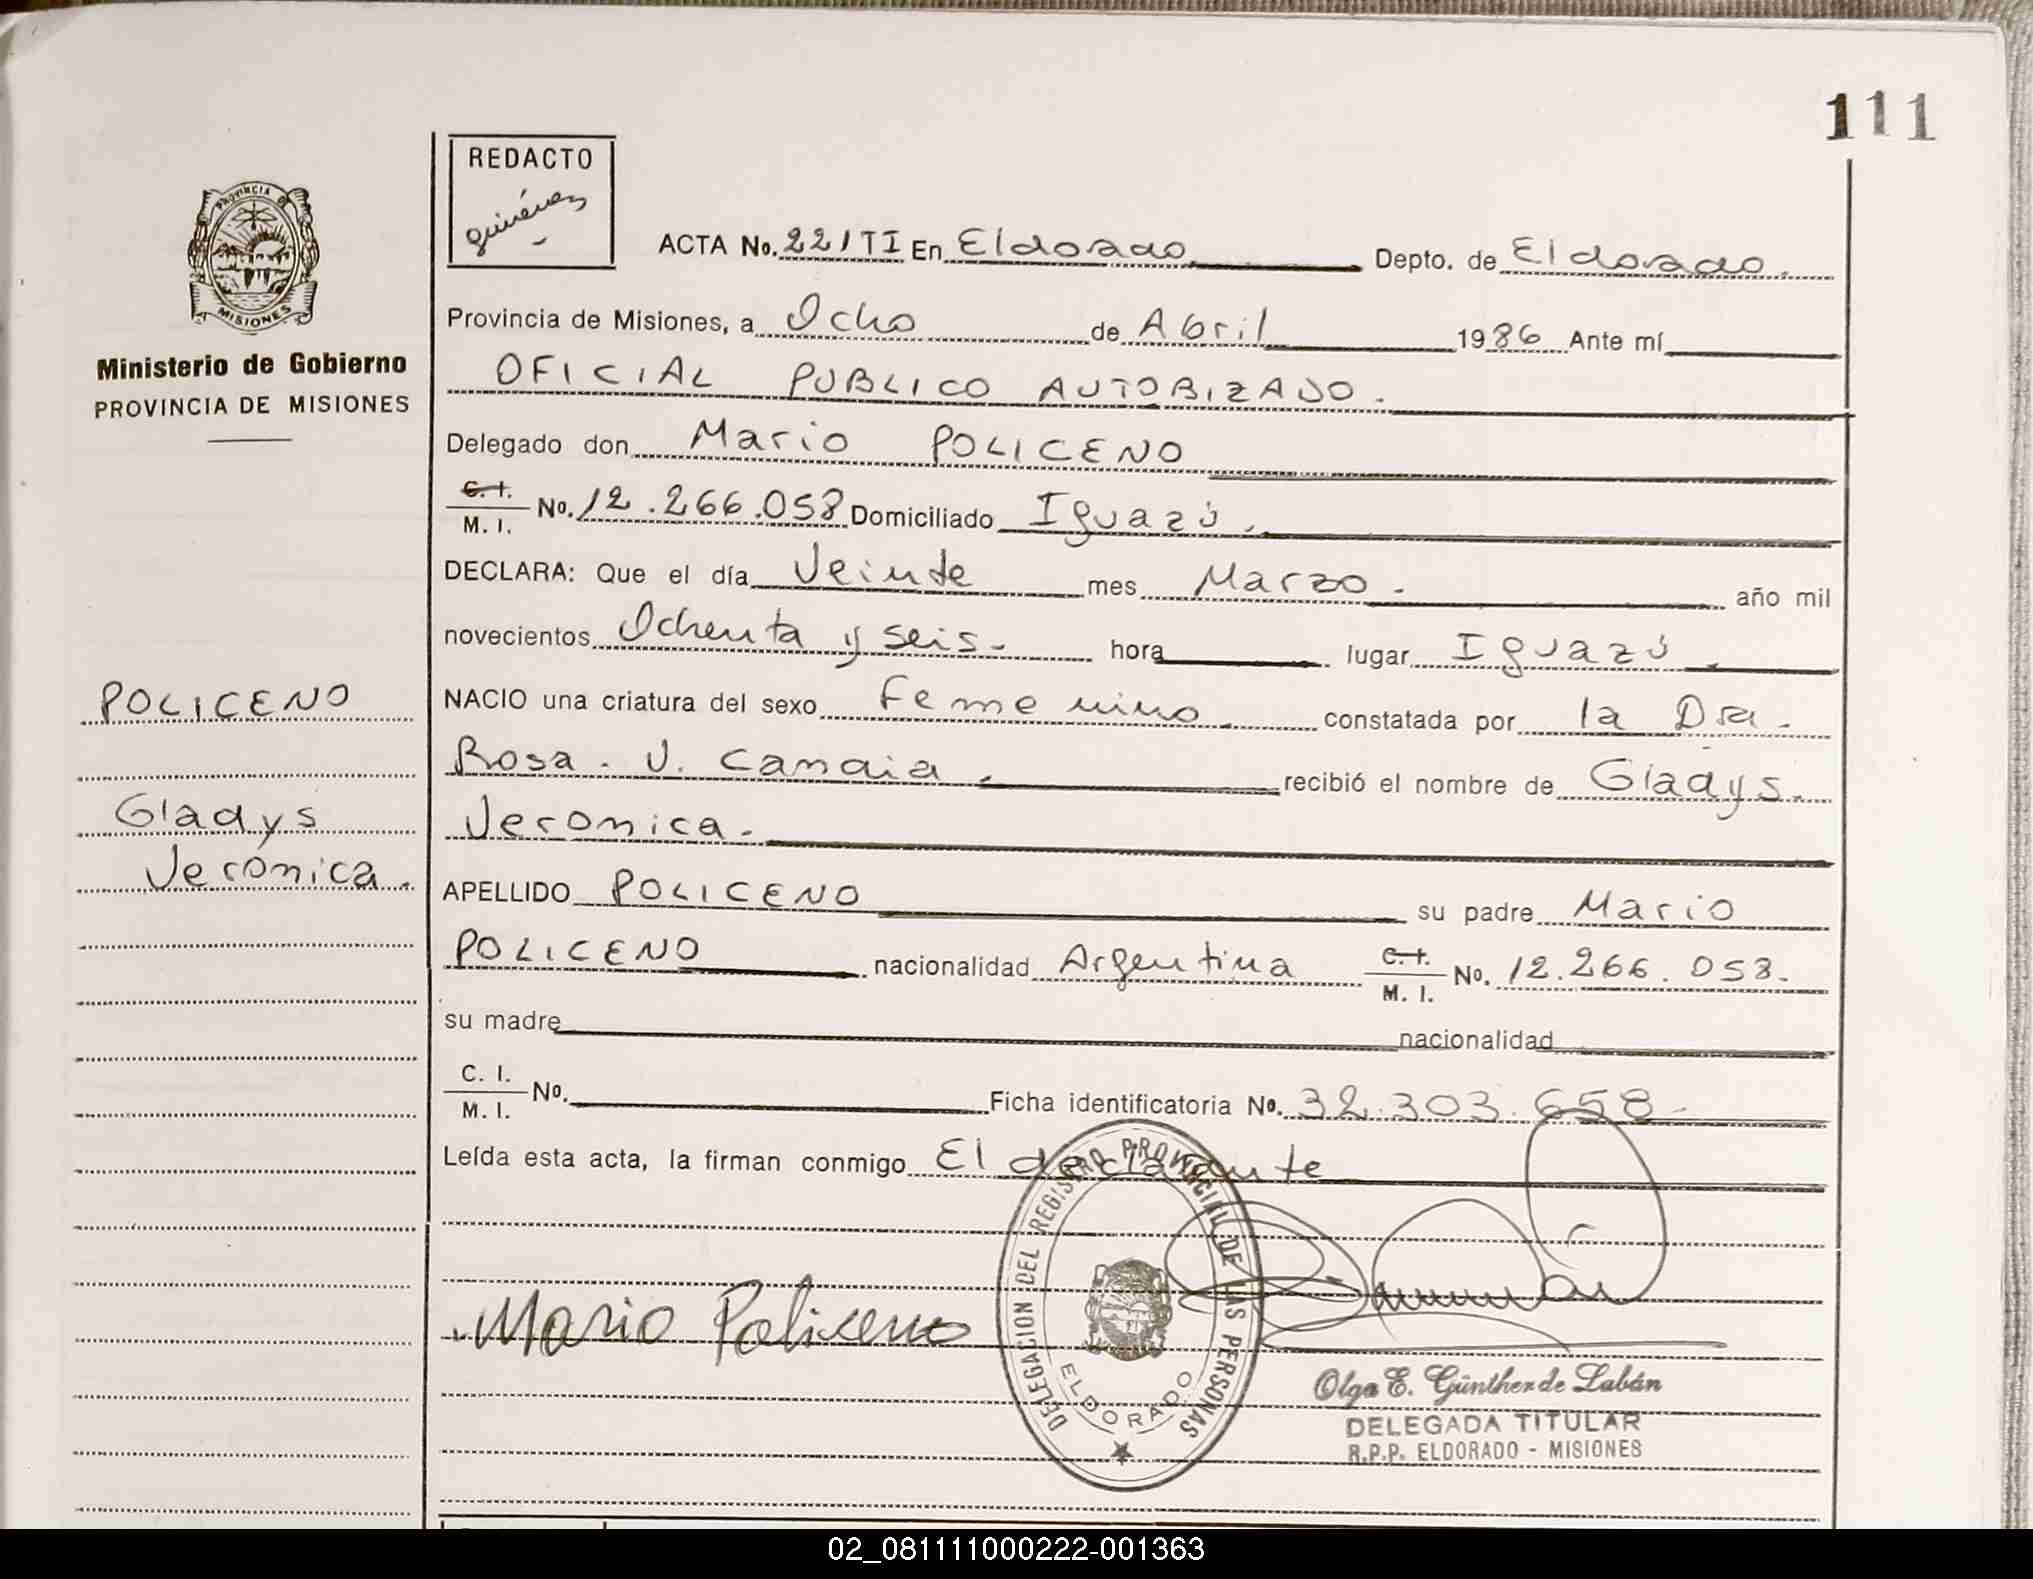 111
REDACTO
giménez
PROVINCIA DE
MISIONES
Ministerio de Gobierno
PROVINCIA DE MISIONES
ACTA No. 221TI En Eldorado Depto. de Eldorado.
Provincia de Misiones, a Ocho de Abril 1986 Ante mí
OFICIAL PUBLICO AUTORIZADO.
Delegado don Mario POLICENO
C. I. M. I. No. 12.266.058 Domiciliado Iguazú.
DECLARA: Que el día Veinte mes Marzo. año mil
novecientos Ochenta y seis. hora lugar Iguazú.
POLICENO
NACIO una criatura del sexo Femenino. constatada por la Dra.
Rosa. V. recibió el nombre de Gladys.
Gladys
Veronica.
Veronica.
APELLIDO POLICENO su padre Mario
POLICENO nacionalidad Argentina C. I. M. I. No. 12.266.058.
su madre nacionalidad
C. I. M. I. No. Ficha identificatoria No. 32.303.658.
Leída esta acta, la firman conmigo El declarante
Mario Policeno
DELEGACION DEL REGISTRO PROVINCIAL DE LAS PERSONAS
ELDORADO
Olga E. Günther de Labán
DELEGADA TITULAR
R.P.P. ELDORADO - MISIONES
02_081111000222-001363